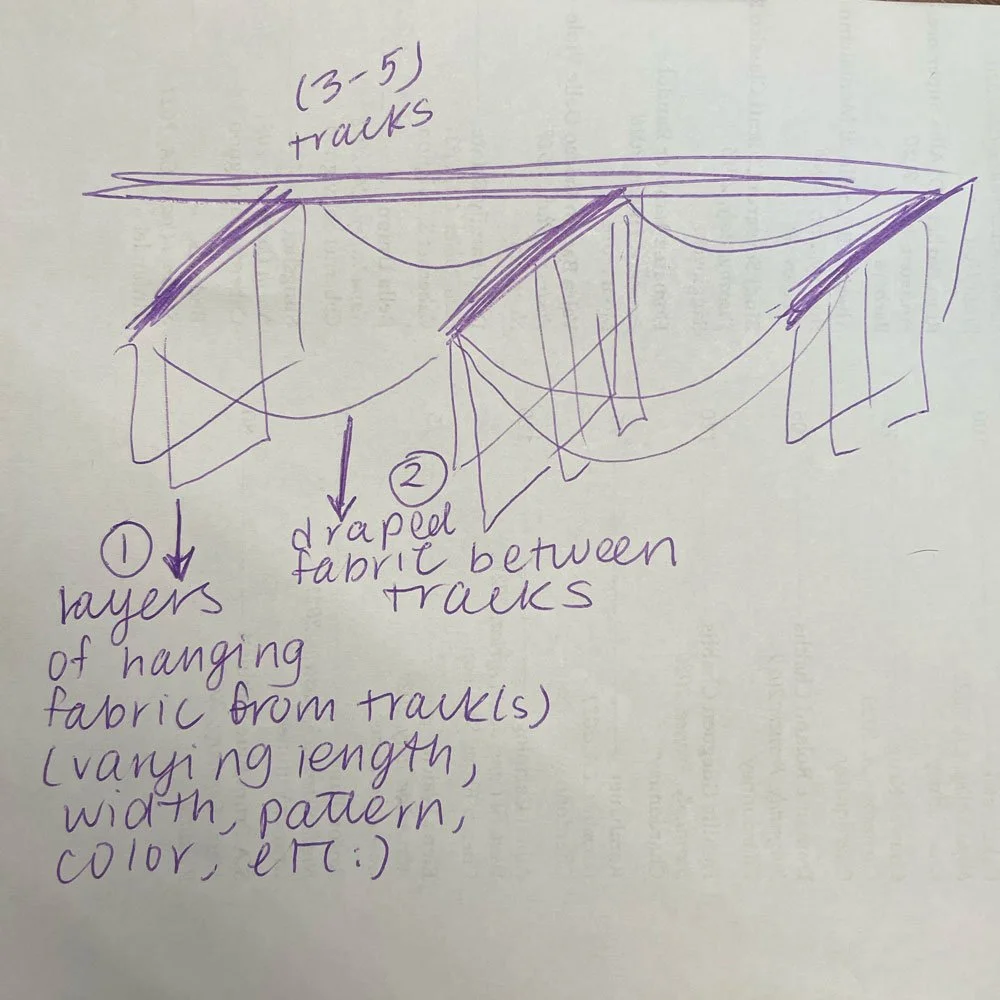 (3-5)
tracks
②
draped
fabric between
tracks
①
layers
of hanging
fabric from track(s)
(varying length,
width, pattern,
color, etc.)